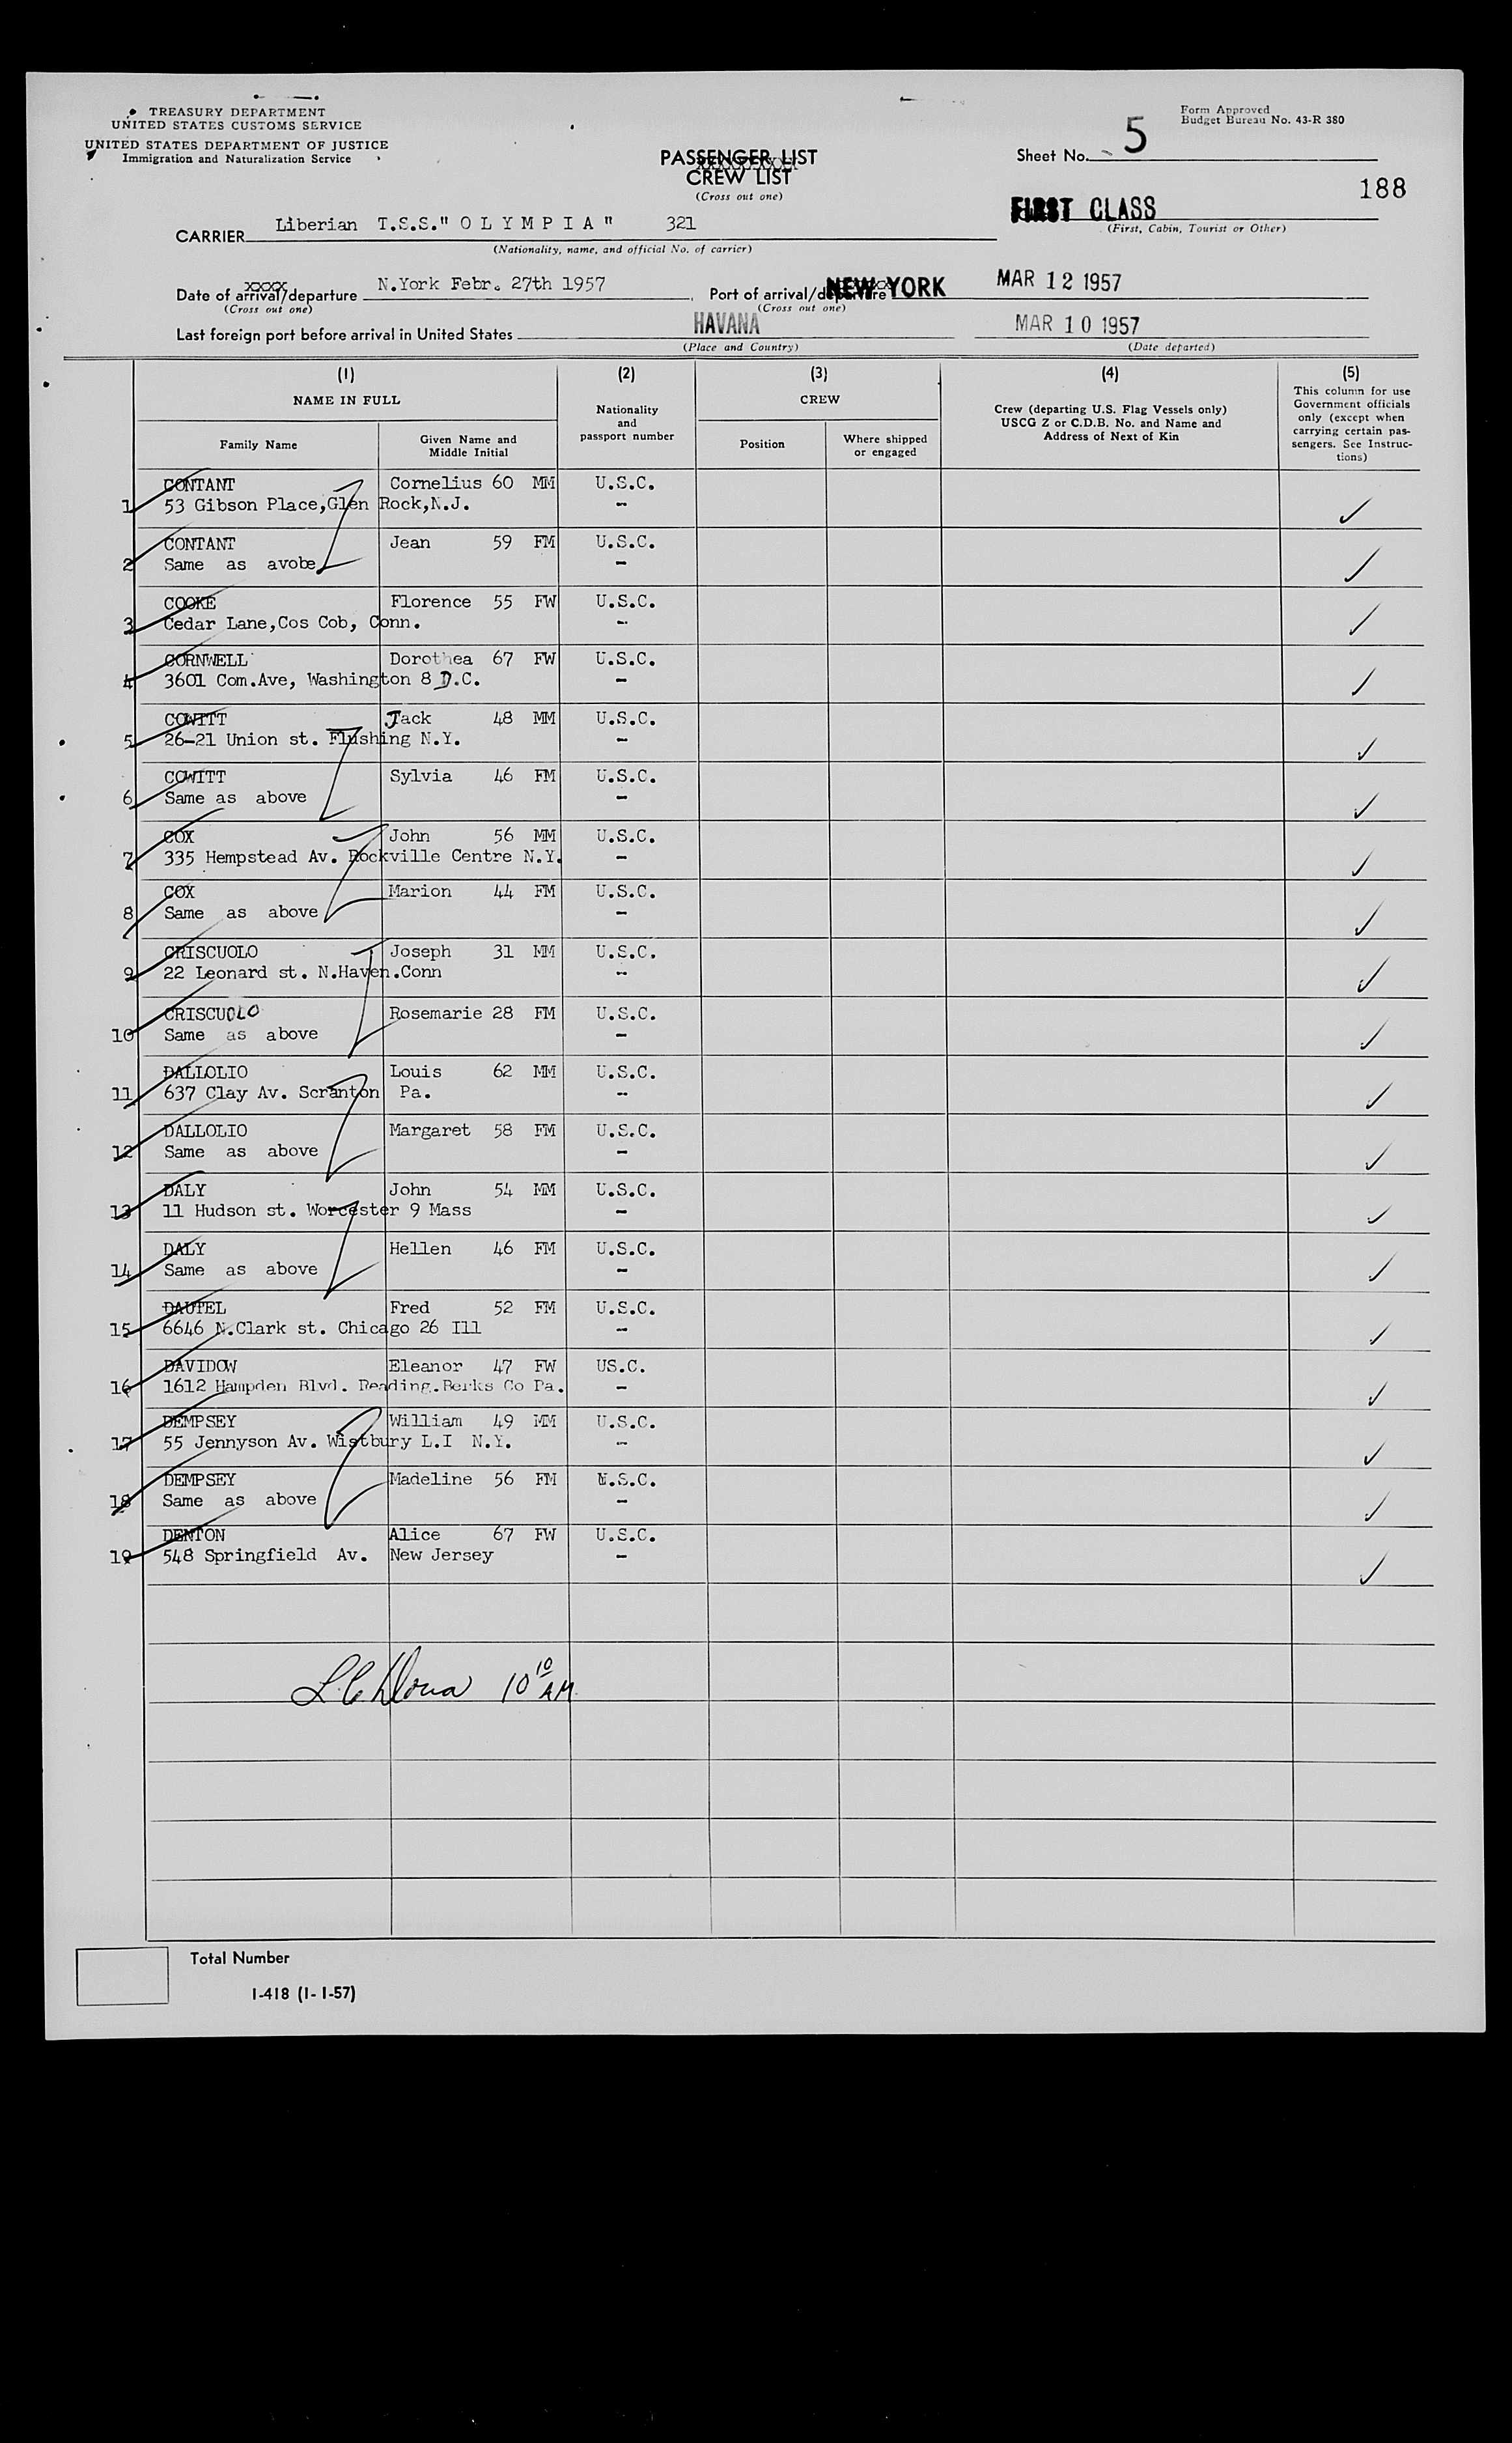 TREASURY DEPARTMENT
UNITED STATES CUSTOMS SERVICE
UNITED STATES DEPARTMENT OF JUSTICE
Immigration and Naturalization Service
Form Approved
Budget Bureau No. 43-R 380
PASSENGER LIST
CREW LIST
(Cross out one)
Sheet No. 5
188
FIRST CLASS
(First, Cabin, Tourist or Other)
CARRIER Liberian T.S.S." O L Y M P I A " 321
(Nationality, name, and official No. of carrier)
Date of arrival/departure N.York Febr. 27th 1957 Port of arrival/departure NEW YORK MAR 12 1957
(Cross out one) (Cross out one)
Last foreign port before arrival in United States HAVANA MAR 10 1957
(Place and Country) (Date departed)
(1) (2) (3) (4) (5)
NAME IN FULL
Family Name
Given Name and
Middle Initial
Nationality
and
passport number
CREW
Position
Where shipped
or engaged
Crew (departing U.S. Flag Vessels only)
USCG Z or C.D.B. No. and Name and
Address of Next of Kin
This column for use
Government officials
only (except when
carrying certain pas-
sengers. See Instruc-
tions)
CONTANT Cornelius 60 MM U.S.C.
1 53 Gibson Place,Glen Rock,N.J. -
CONTANT Jean 59 FM U.S.C.
2 Same as avobe -
COOKE Florence 55 FW U.S.C.
3 Cedar Lane,Cos Cob, Conn. -
CORNWELL Dorothea 67 FW U.S.C.
4 3601 Com.Ave, Washington 8 D.C. -
COWITT Jack 48 MM U.S.C.
5 26-21 Union st. Flushing N.Y. -
COWITT Sylvia 46 FM U.S.C.
6 Same as above -
COX John 56 MM U.S.C.
7 335 Hempstead Av. Rockville Centre N.Y. -
COX Marion 44 FM U.S.C.
8 Same as above -
CRISCUOLO Joseph 31 MM U.S.C.
9 22 Leonard st. N.Haven.Conn -
CRISCUOLO Rosemarie 28 FM U.S.C.
10 Same as above -
DALLOLIO Louis 62 MM U.S.C.
11 637 Clay Av. Scranton Pa. -
DALLOLIO Margaret 58 FM U.S.C.
12 Same as above -
DALY John 54 MM U.S.C.
13 11 Hudson st. Worcester 9 Mass -
DALY Hellen 46 FM U.S.C.
14 Same as above -
DAUTEL Fred 52 FM U.S.C.
15 6646 N.Clark st. Chicago 26 Ill -
DAVIDOW Eleanor 47 FW US.C.
16 1612 Hampden Blvd. Reading.Berks Co Pa. -
DEMPSEY William 49 MM U.S.C.
17 55 Jennyson Av. Wistbury L.I N.Y. -
DEMPSEY Madeline 56 FM U.S.C.
18 Same as above -
DENTON Alice 67 FW U.S.C.
19 548 Springfield Av. New Jersey -
10 10 AM
Total Number
I-418 (1-1-57)